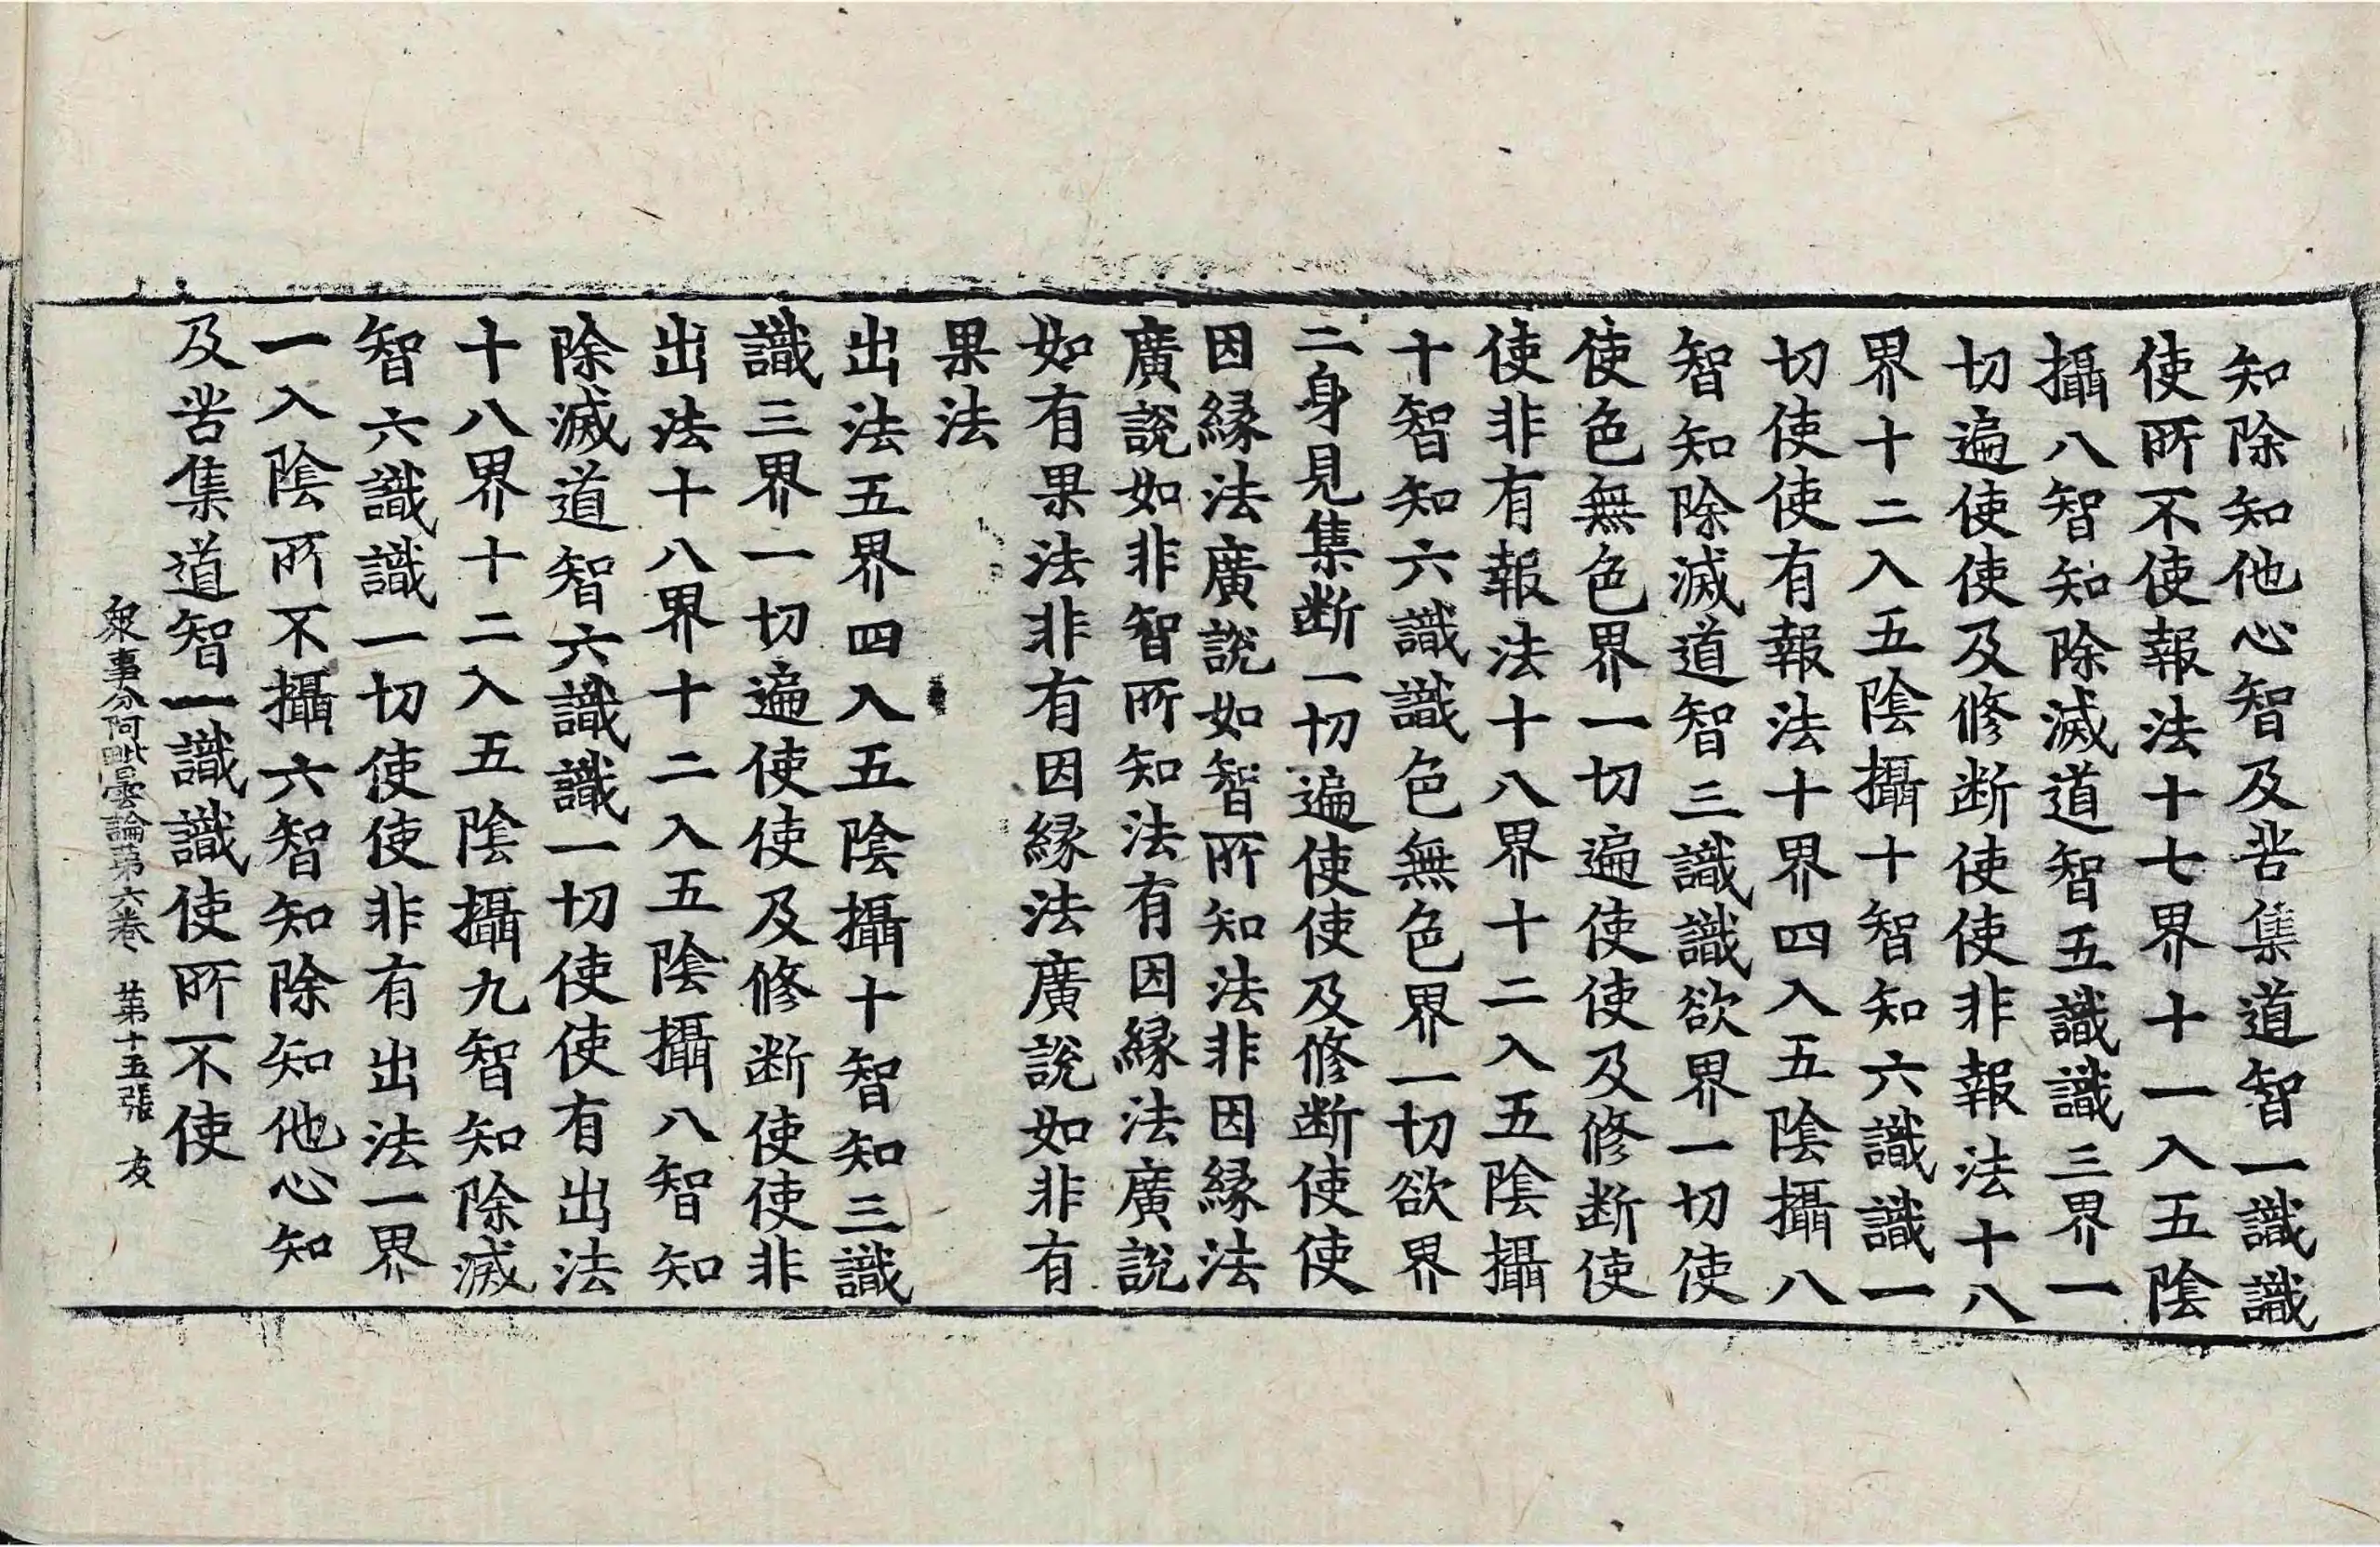 知除知他心智及苦集道智一識識
使所不使報法十七界十一入五陰
攝八智知除滅道智五識識三界一
切遍使使及修断使使非報法十八
界十二入五陰攝十智知六識識一
切使使有報法十界四入五陰攝八
智知除滅道智三識識欲界一切使
使色無色界一切遍使使及修断使
使非有報法十八界十二入五陰攝
十智知六識識色無色界一切欲界
二身見集断一切遍使使及修断使使
因縁法廣說如智所知法非因縁法
廣說如非智所知法有因縁法廣說
如有果法非有因縁法廣說如非有
果法
出法五界四入五陰攝十智知三識
識三界一切遍使使及修断使使非
出法十八界十二入五陰攝八智知
除滅道智六識識一切使使有出法
十八界十二入五陰攝九智知除滅
智六識識一切使使非有出法一界
一入陰所不攝六智知除知他心知
及苦集道智一識識使所不使
衆事分阿毗曇論第六卷　第十五張　友